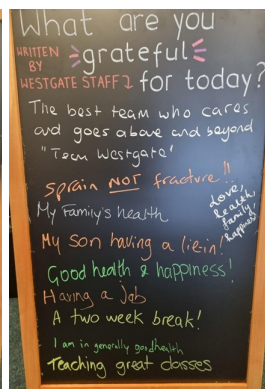 What are you
grateful
for today?
WRITTEN
BY
WESTGATE STAFF
The best team who cares
and goes above and beyond
"Team Westgate'
Sprain NOT fracture!!
Love,
health,
family,
happiness
My Family's health
My son having a lie in!
Good health & happiness!
Having a job
A two week break!
I am in generally good health
Teaching great classes